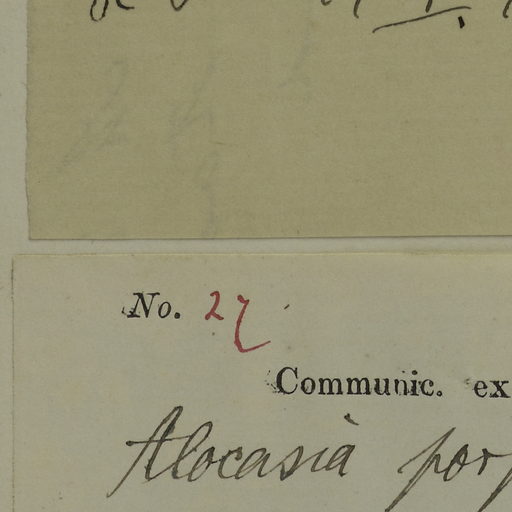 No. 27
Communic. ex
Alocasia por